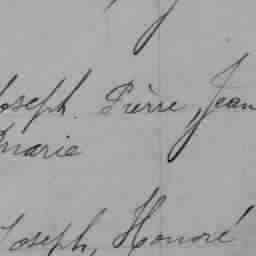 Joseph. Pièrre, Jean
Marie
Joseph, Honoré